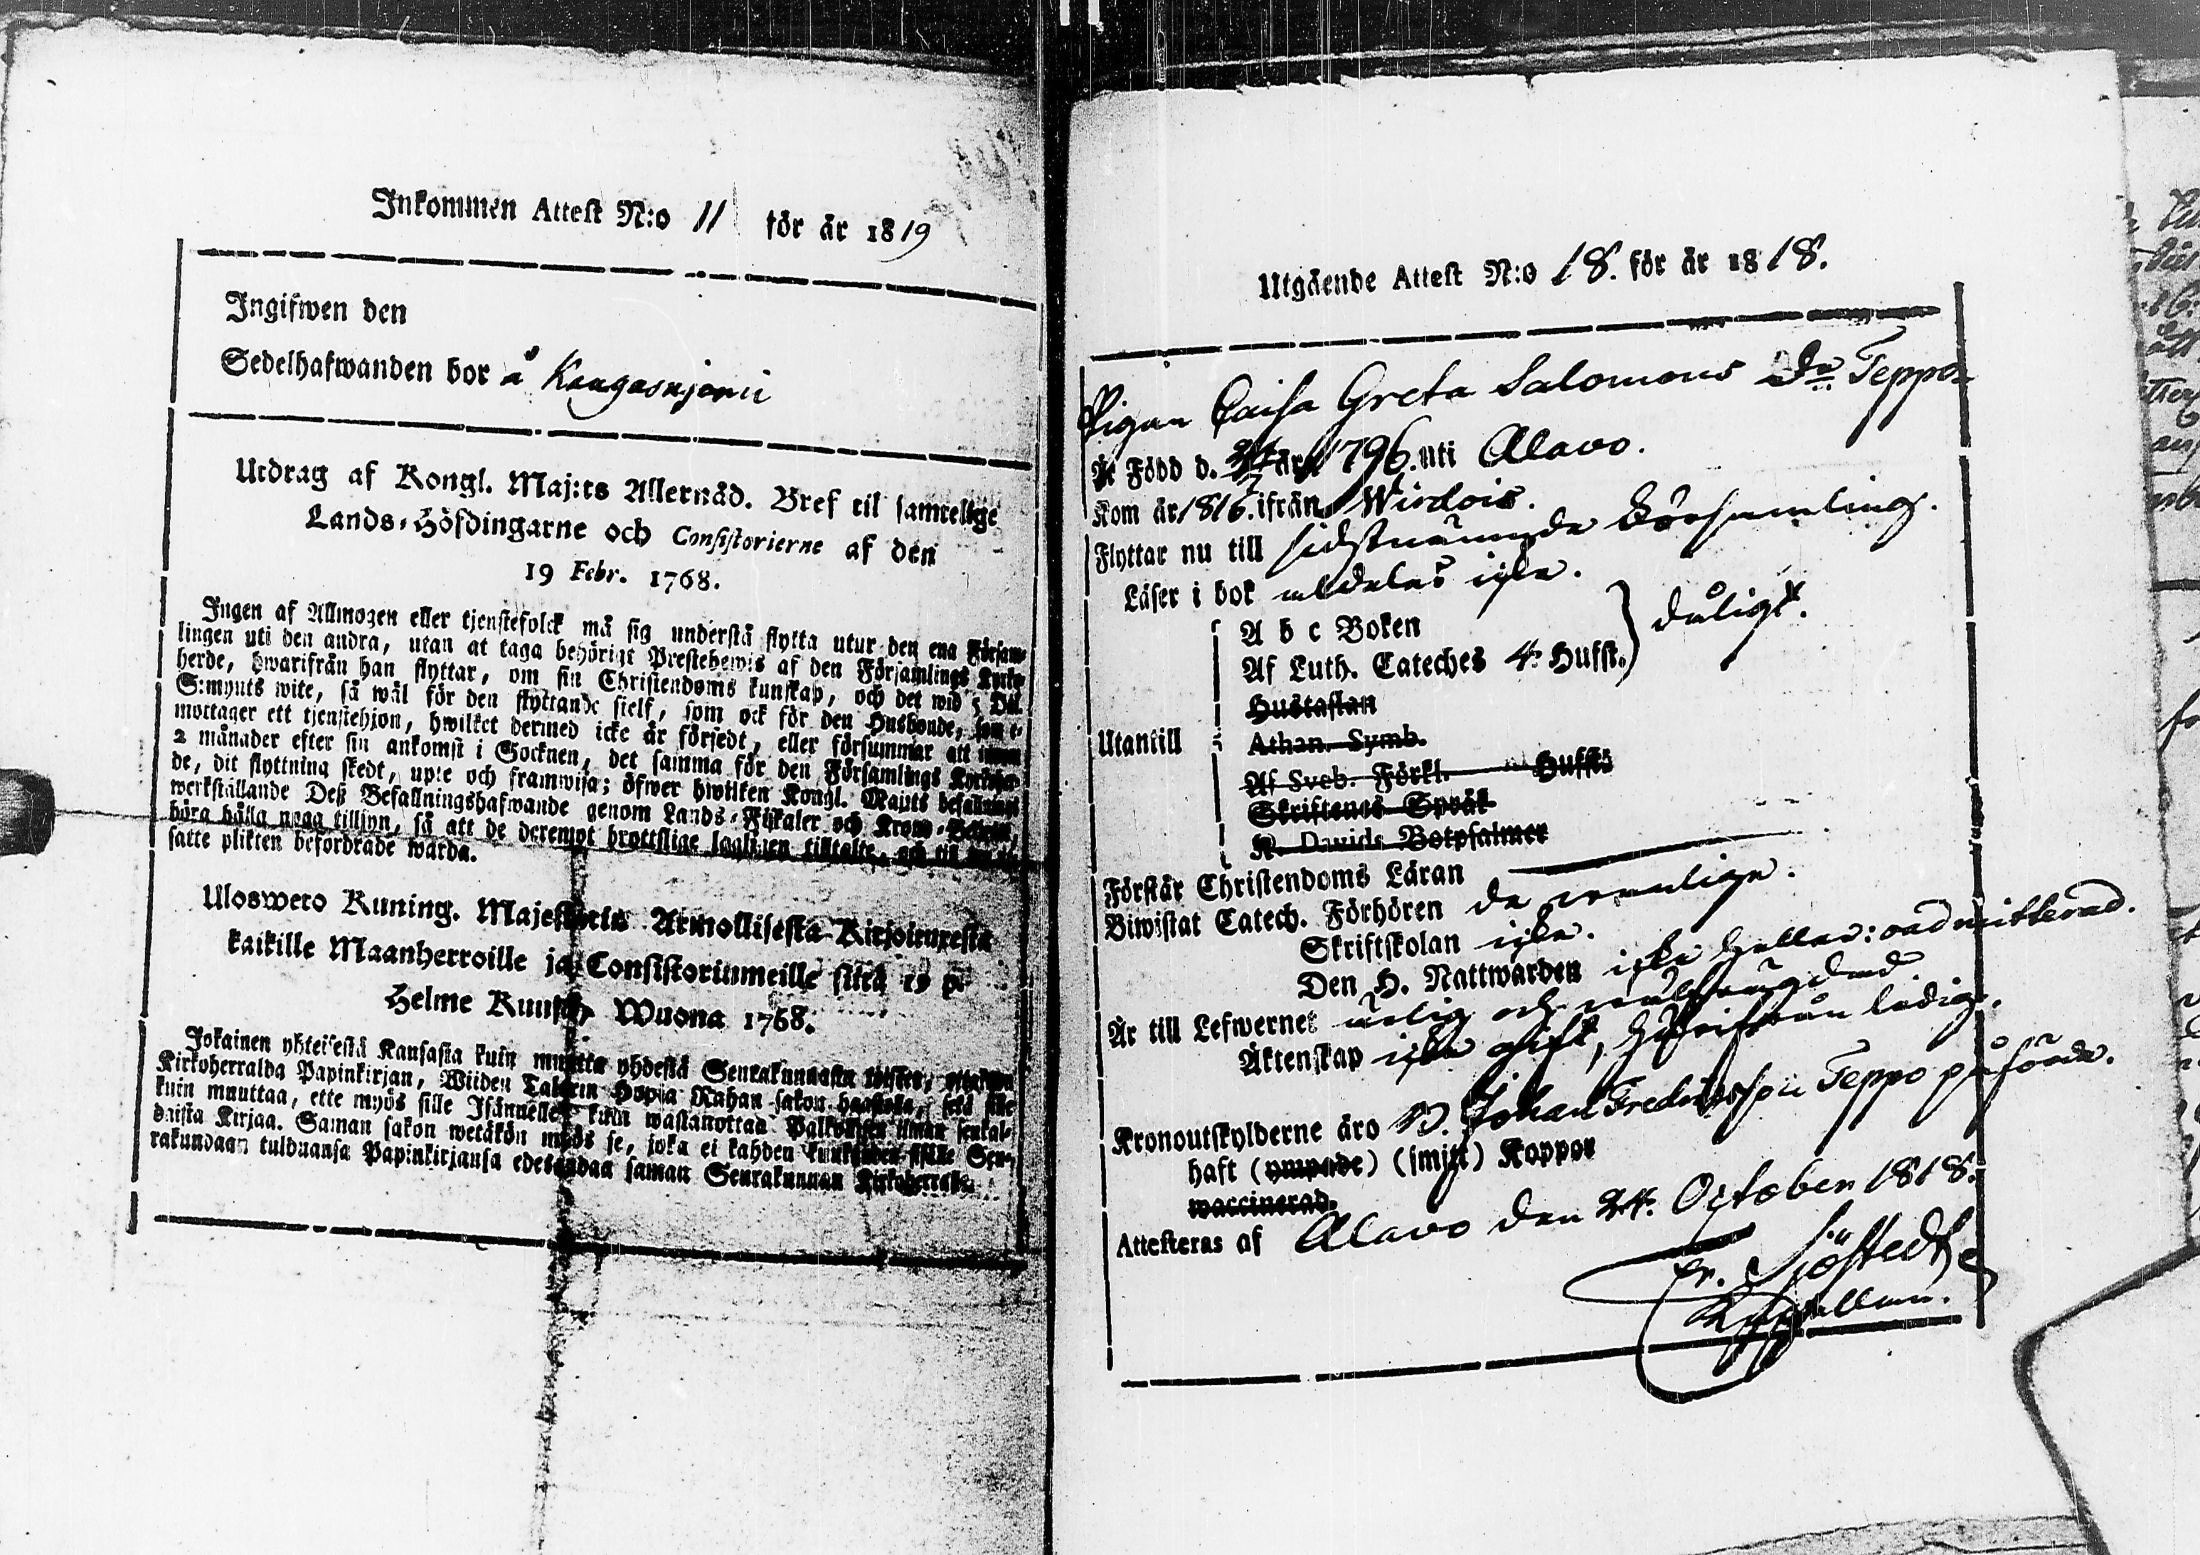 Inkommen Attest N:o 11 för år 1819
Ingifwen den
Sedelhafwanden bor å Kangasujarwi
Utdrag af Kongl. Maj:ts Allernåd. Bref til samtelige
Lands-Höfdingarne och Consistorierne af den
19 Febr. 1768.
Ingen af Allmogen eller tjenstefolck må sig understå flytta utur den ena Försam-
lingen uti den andra, utan at taga behörigt Prestebewis af den Församlings Kyrko-
herde, hwarifrån han flyttar, om sin Christendoms kunskap, och det wid 5 Dal.
S:mynts wite, så wäl för den flyttande sielf, som ock för den Husbonde, som e-
mottager ett tjenstehjon, hwilket dermed icke är försedt, eller försummar att innom
2 månader efter sin ankomst i Socknen, det samma för den Församlings Kyrkoher-
de, dit flyttning skedt, upte och framwisa; öfwer hwilken Kongl. Maj:ts befallning
werkställande Deß Befallningshafwande genom Lands-Fiskaler och Krono-Betjente
böra hålla noga tillsyn, så att de deremot brottslige lagligen tilltalte, och til
satte plikten befordrade warda.
Ulosweto Kuning. Majestetin Armollisesta Kirjoituxesta
kaikille Maanherroille ja Consistoriumeille siitä 19 p.
Helme Kuusa Wuona 1768.
Jokainen yhteisestä Kansasta kuin muutta yhdestä Seurakunnasta toiseen, ottakon
Kirkoherralda Papinkirjan, Wiiden Talarin Hopia Rahan sakon haastolla, sekä sille
kuin muuttaa, ette myös sille Isännelle, kuin wastanottaa Palkollisen ilman senkal-
daista Kirjaa. Saman sakon wetäkön myös se, joka ei kahden kuukauden sisälle Seu-
rakundaan tulduansa Papinkirjansa edesandaa saman Seurakunnan Kirkoherralle.
Utgående Attest N:o 18. för år 1818.
Pigan Caisa Greta Salomons Dr Teppo
Är Född d. 24 år 1796. uti Alavo.
Kom år 1816. ifrån Wirdois.
Flyttar nu till sidstnämnde Församling.
Läser i bok alldeles icke.
A b c Boken
Af Luth. Cateches 4. Hufst. } dåligt.
Hustaflan
Utantill Athan. Symb.
Af Sveb. Förkl. Hufst.
Skriftenes Språk
K. Davids Botpsalmer
Förstår Christendoms Läran
Biwistat Catech. Förhören de wanlige.
Skriftskolan icke.
Den H. Nattwarden icke heller: oadmitterad.
Är till Lefwernet ärlig och
Äktenskap icke gift, hwarifrån ledig.
Kronoutskylderne äro B. Johan Fredricsson Teppo påförde.
haft (ympade) (smitt) Koppor
waccinerad.
Attesteras af Alavo den 24. October 1818.
Er. Sjöstedt
Kapellan.